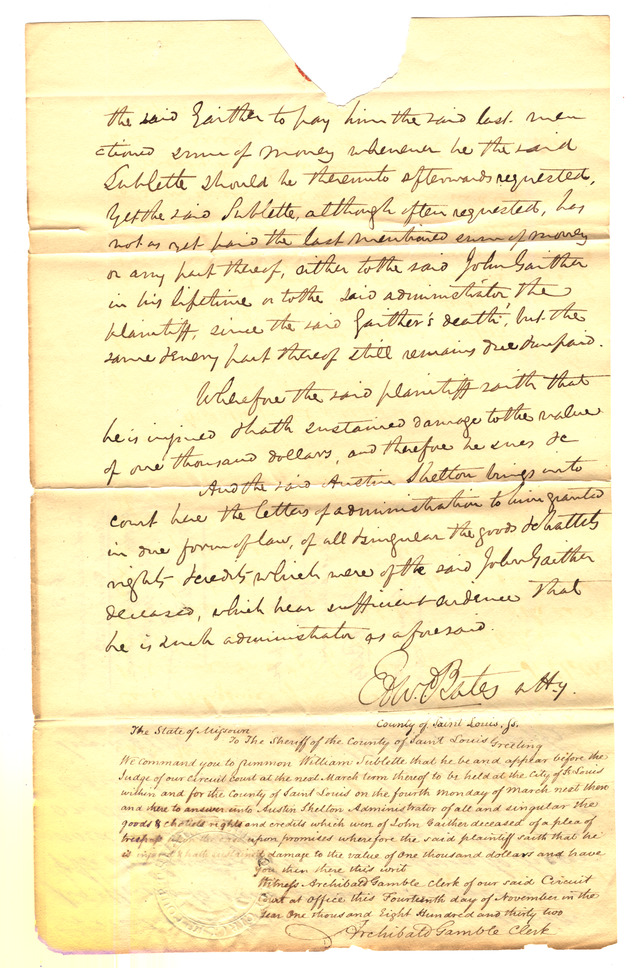 the said Gaither to pay him the said last men
ctioned sum of money whenever he the said
Sublette should be thereunto afterwards requested,
Yet the said Sublette, although often requested, has
not as yet paid the last mentioned sum of money
or any part thereof, either to the said John Gaither
in his lifetime or to the said administrator the
plaintiff, since the said Gaither's death, but the
same & every part thereof still remains due & unpaid.
Wherefore the said plaintiff saith that
he is injured & hath sustained damage to the value
of one thousand dollars, and therefore he sues &c
And the said Austin Shelton brings into
court here the letters of administration to him granted
in due form of law, of all & singular the goods & chattels
rights & credits which were of the said John Gaither
deceased, which bear sufficient evidence that
he is such administrator as aforesaid.
Edw. Bates atty.
The State of Missouri County of Saint Louis, Ss.
To The Sheriff of the County of Saint Louis Greeting
We command you to summon William Sublette that he be and appear before the
Judge of our Circuit court at the next March term thereof to be held at the City of St Louis
within and for the County of Saint Louis on the fourth monday of march next then
and there to answer unto Austin Shelton Administrator of all and singular the
goods & chattels rights and credits which wer of John Gaither deceased of a plea of
trespass upon promises wherefore the said plaintiff saith that he
is injured & hath sustained damage to the value of One thousand dollars and have
you then there this writ
Witness Archibald Gamble Clerk of our said Circuit
Court at Office this Fourteenth day of November in the
Year One thousand Eight Hundred and thirty two
Archibald Gamble Clerk